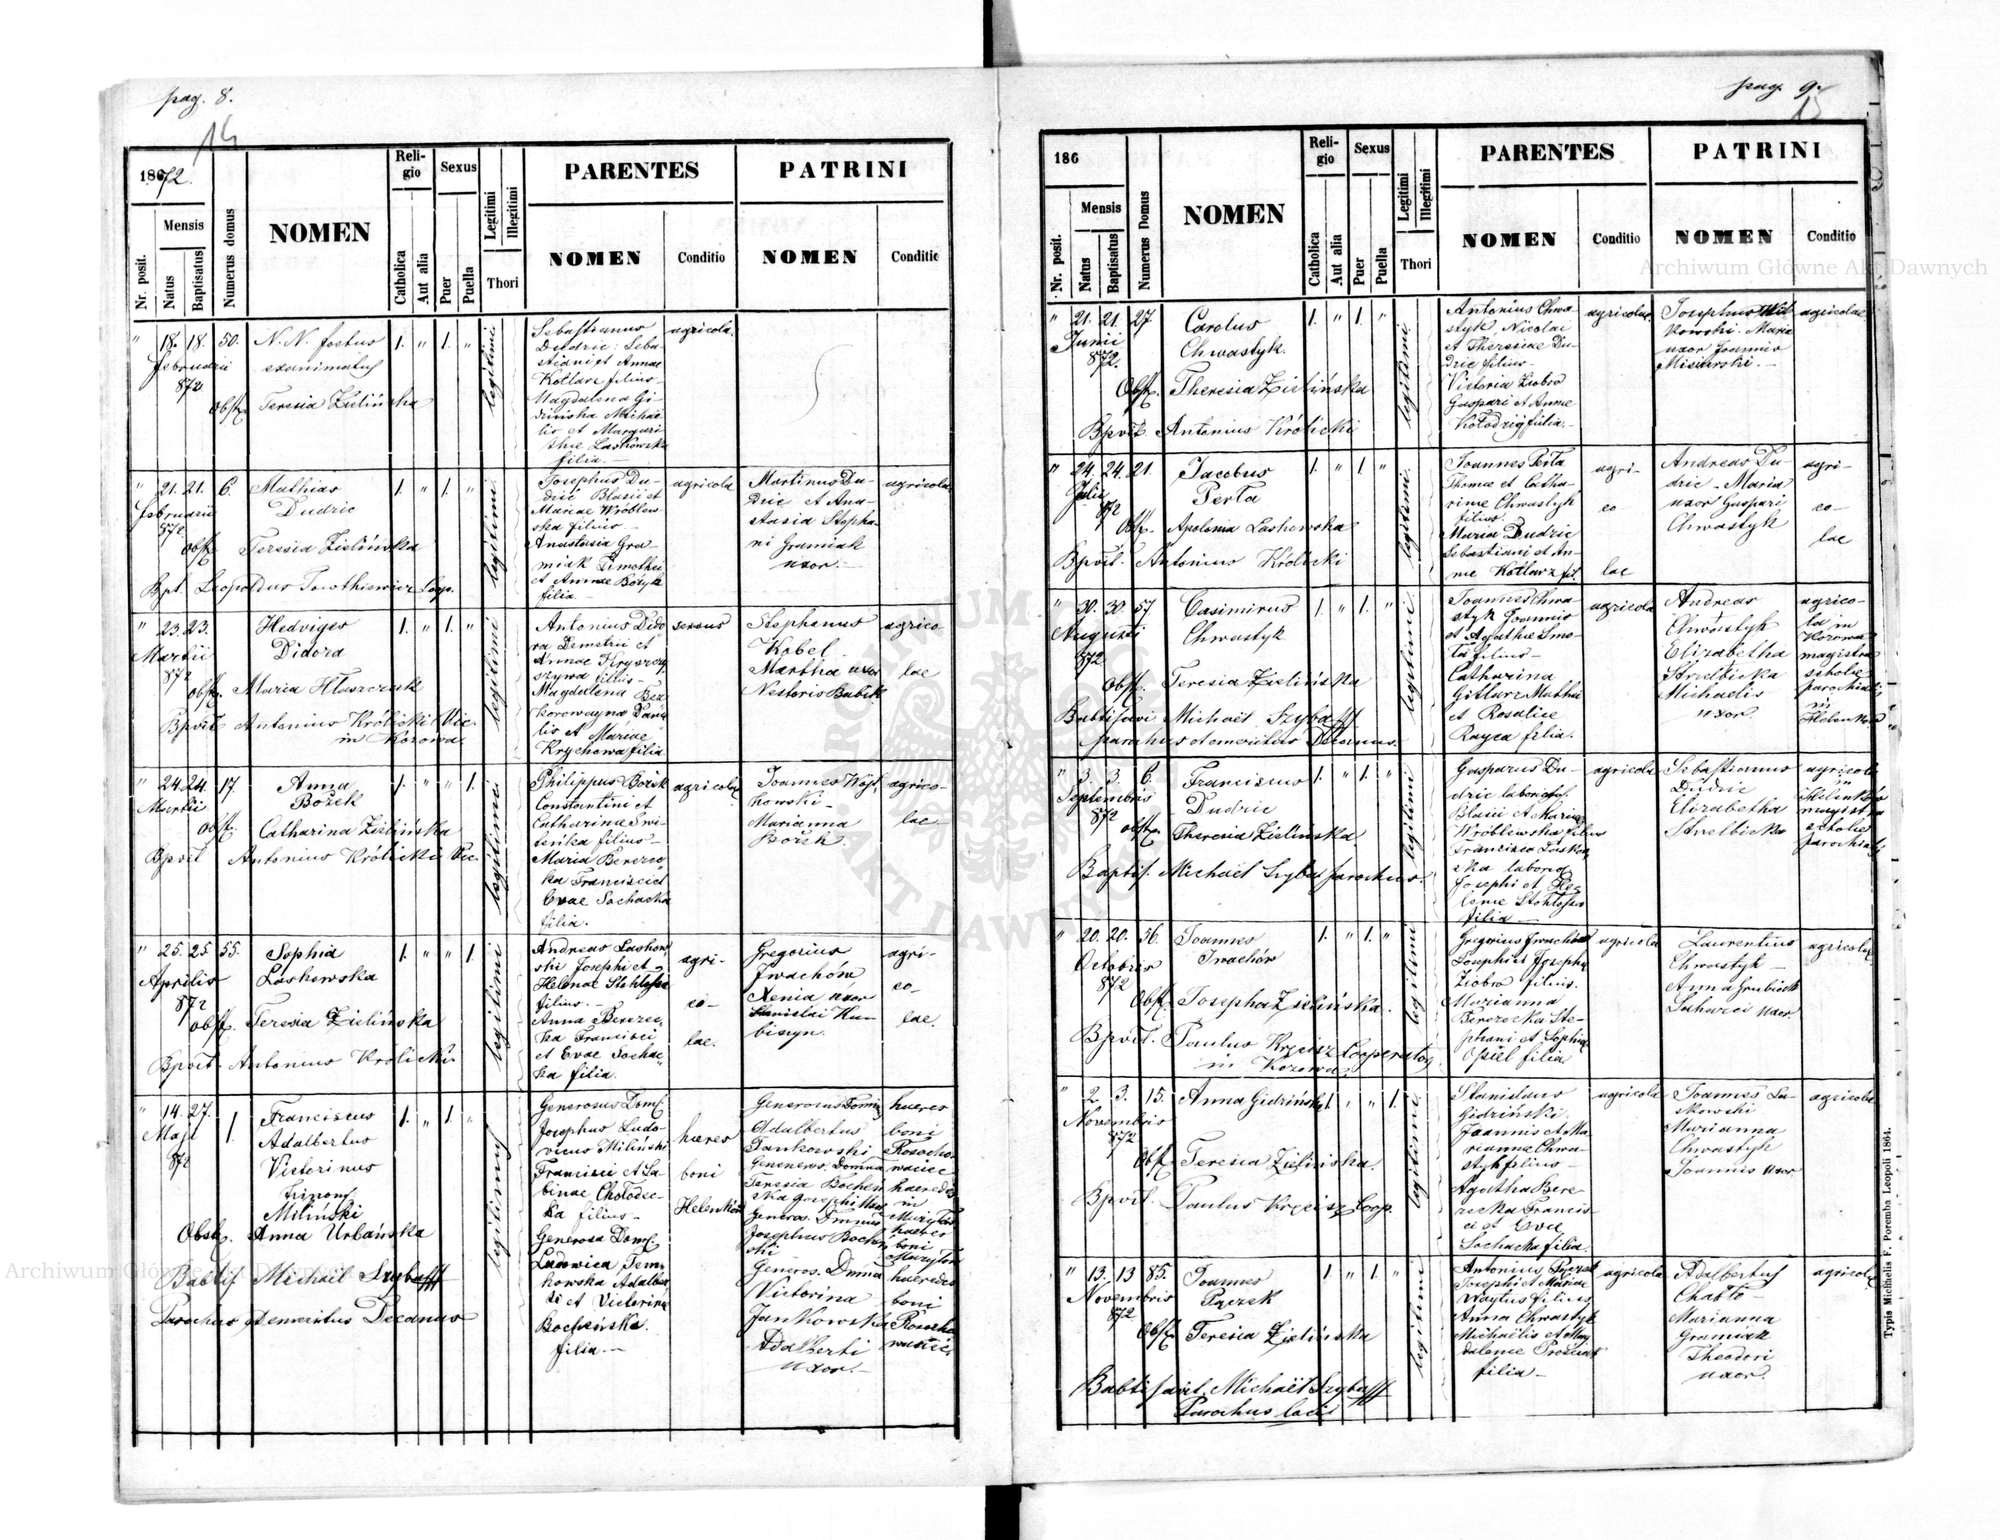 pag. 8.
14
1872.
Nr. posit.
Mensis
Natus
Baptisatus
Numerus domus
NOMEN
Religio
Catholica
Aut alia
Sexus
Puer
Puella
Legitimi
Illegitimi
Thori
PARENTES
NOMEN
Conditio
PATRINI
NOMEN
Conditio
" 18. 18. 50. N. N. foetus 1. " 1. "
februarii
872
exanimatus
Obst. Teresia Zielińska
legitimi
Sebastianus
Dudric: Seba-
stiani et Annae
Kotlarz filius-
Magdalena Gi-
dzińska Michae
lis et Margari
thae Laskowska
filia.-
agricola.
" 21. 21. 6. Mathias 1. " 1. "
Dudric
februarii
872
Obst. Teresia Zielińska
Bpt. Leopoldus Coop.
legitimi
Josephus Du-
dric Blasii et
Mariae Wróblew
ska filius.-
Anastasia Gra-
miak Timothei
et Annae Bożyk
filia.-
agricola
Martinus Du-
dric et Ana-
stasia Stepha-
ni Gramiak
uxor.-
agricola
" 23. 23. Hedviges 1. " 1. "
Didora
Martii
872
Obst. Maria Hlaszczuk
Bpvit Antonius Królicki Vic.
in Kozowa.
legitimi
Antonius Dido
ra Demetrii et
Annae
filius-
Magdalena
Dani
lis et Mariae
Krychowa filia
Stephanus
Kobel-
Martha uxor
Nestoris Babik
agrico
lae
" 24. 24. 17. Anna 1. " " 1.
Bożek
Martii
Obst. Catharina Zielińska
Bpvit Antonius Królicki Vic.
legitimi
Philippus Bożek
Constantini et
Catharinae Swi-
filius-
Maria Berezec-
ka Francisci et
Evae Sochacka
filia.
agricola
Joannes
kowski-
Marianna
Bożek.
agrico-
lae
" 25. 25. 55. Sophia 1. " " 1.
Laskowska
Aprilis
872
Obst. Teresia Zielińska
Bpvit Antonius Królicki
legitimi
Andreas Laskow
ski Josephi et
Helenae Stohlosa
filius.-
Anna Berezec-
ka Francisci
et Evae Sochac-
ka filia.
agri-
co-
lae.
Gregorius
Iwachów
Xenia uxor
Stanislai Ku-
bisyn.
agri-
co-
lae.
" 14. 27. 1. Franciscus 1. " 1. "
Maji
872
Adalbertus
Victorinus
Miliński
Obst. Anna Urbańska
Babtis Michaël Szybaff
Parochus Demeritus Decanus
legitimus
Generosus Dom.
Josephus Ludo-
vicus Miliński
Francisci et Sa-
binae Chołodec-
ka filius-
Generosa Dom.
Ludovica Jan-
kowska Adalber
ti et Victorina
Bocheńska
filia.-
haeres
boni
Helenków
Generosus Domin
Adalbertus
Jankowski
Generos. Domina
Teresia Bocheń
ska Josephi uxor
Generos. Dominus
Josephus Bocheń
ski-
Generos. Dmna
Victorina
Jankowska
Adalberti
uxor.-
haeres
boni
Rosocho
waciec
haeredes
in
haeres
boni
haeredes
boni
pag. 9.
15
186
Nr. posit.
Mensis
Natus
Baptisatus
Numerus Domus
NOMEN
Religio
Catholica
Aut alia
Sexus
Puer
Puella
Legitimi
Illegitimi
Thori
PARENTES
NOMEN
Conditio
PATRINI
NOMEN
Conditio
" 21. 21. 27. Carolus 1. " 1. "
Chwastyk.
Junii
872.
Obst. Theresia Zielińska
Bpvit. Antonius Królicki
legitimi
Antonius Chwa
styk Nicolai
et Theresiae Du-
dric filius-
Victoria Ziobro
Gaspari et Annae
Kołodzij filia.-
agricolae
Josephus Wit
kowski. Maria
uxor Joannis
Misiurski.-
agricolae
" 24. 24. 21. Jacobus 1. " 1. "
Perta
Julii
872
Obst. Apolonia Laskowska
Bpvit. Antonius Królicki
legitimi
Joannes Perta
Thomae et Catha-
rinae Chwastyk
filius.
Maria Dudric
Sebastiani et An-
nae Kotlarz fil.
agri-
co-
lae
Andreas Du-
dric - Maria
uxor Gaspari
Chwastyk
agri-
co-
lae
" 30. 30. 57. Casimirus 1. " 1. "
Chwastyk
Augusti
872
Obst. Teresia Zielińska
Babtisavi Michaël Szybaff
parochus et emeritus Decanus.
legitimi
Joannes Chwa
styk Joannis
et Agathae Smo-
filius-
Catharina
Mathia
et Rosaliae
Rayca filia.
agricola
Andreas
Chwastyk
Elizabetha
Strelbicka
Michaelis
uxor.
agrico-
la in
Kozowa
magistra
scholae
parochialis
in
Helenków
" 3. 3. 6. Franciscus 1. " 1. "
Dudric
Septembris
872
Obst. Theresia Zielińska
Baptis. Michaël Szybaf parochus.
legitimi
Gasparus Du-
dric
Blasii et Mariae
Wróblewska filius
Francisca Laskow
ska
Josephi et He-
lenae Stohlosa
filia-
agricola
Sebastianus
Dudric
Elizabetha
Strelbicka
agricola
in
Helenków
magistra
scholae
parochialis
" 20. 20. 56. Joannes 1. " 1. "
Iwachów
Octobris
872
Obst. Josepha Zielińska.
Bpvit. Paulus Kręcisz Cooperator
in Kozowa.
legitimi
Gregorius Iwachów
Josephi et Josepha
Ziobro filius.
Marianna
Berezecka Ste-
phani et Sophia
filia
agricola
Laurentius
Chwastyk-
Anna
uxor.
agricola
" 2. 3. 15. Anna Gidzińska 1. " " 1.
Novembris
872
Obst. Teresia Zielińska.
Bpvit. Paulus Kręcisz Coop.
legitimi
Stanislaus
Gidziński
Joannis et Ma-
rianna Chwa-
styk filius-
Agatha Bere-
zecka Francis-
ci et Evae
Sochacka filia.
agricola
Joannes La-
skowski
Marianna
Chwastyk
Joannis uxor
agricola
" 13. 13 85. Joannes 1. " 1. "
Novembris
872
Obst. Teresia Zielińska
Babtisavit. Michaël Szybaff
Parochus loci
legitimi
Antonius
Josephi et Mariae
Waytus filius
Anna Chwastyk
Michaelis et Mag
dalenae
filia-
agricola
Adalbertus
Chabto-
Marianna
Gramiak
Theodori
uxor.
agricola
Typis Michaelis F. Poremba Leopoli 1864.
Archiwum Główne Akt Dawnych
Archiwum Główne Akt Dawnych
ARCHIWUM GŁÓWNE AKT DAWNYCH